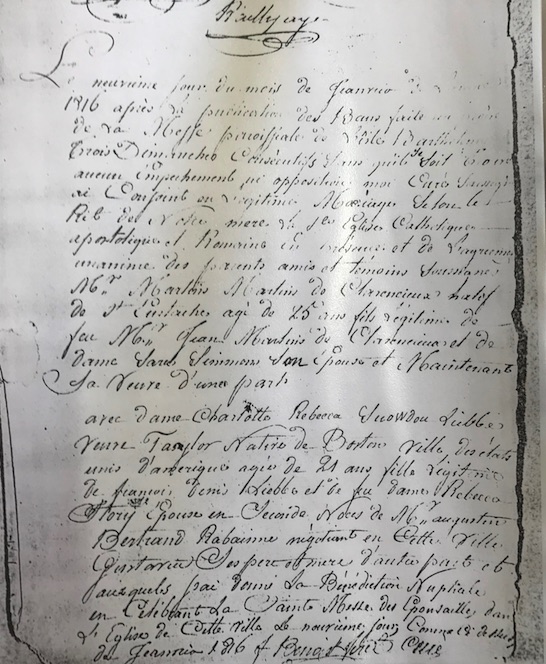 Le neuvième jour du mois de Jeanvier de
1816 après la publication des Bans faite au
de la Messe paroissiale de Barthelemi
trois Dimanches Consécutifs sans qu'il soit
aucun Empechement ni opposition moi Curé Soussigné
ai Conjoint en légitime Mariage Selon le
Rit de Notre mere la Ste Eglise Catholique
apostolique et Romaine en présence et de l'agrément
unanime des parents amis et témoins Soussignés
Mr. Martins Martins de Clarencieux natif
de St Eustache agé de 25 ans fils légitime de
feu Mr. Jean Martins de Clarencieux et de
dame Sara Simmons Son Epouse et Maintenant
Sa Veuve d'une part
avec dame Charlotte Rebecca Snowdon Liebbe
Veuve Taylor Native de Boston Ville des états
unis d'amerique agée de 21 ans fille légitime
de françois Denis Liebbe et de feu dame Rebecca
Story Epouse en Seconde Noces de Mr. augustin
Bertrand Rabainne négotiant en Cette Ville
(Gustavia) Ses pere et mere d'autre part et
auxquels j'ai donné La Bénédiction Nuptiale
en Célébrant La Sainte Messe des Epousailles dans
L'Eglise de Cette Ville Le neuvième jour Comme ci dessus
de Jeanvier 1816